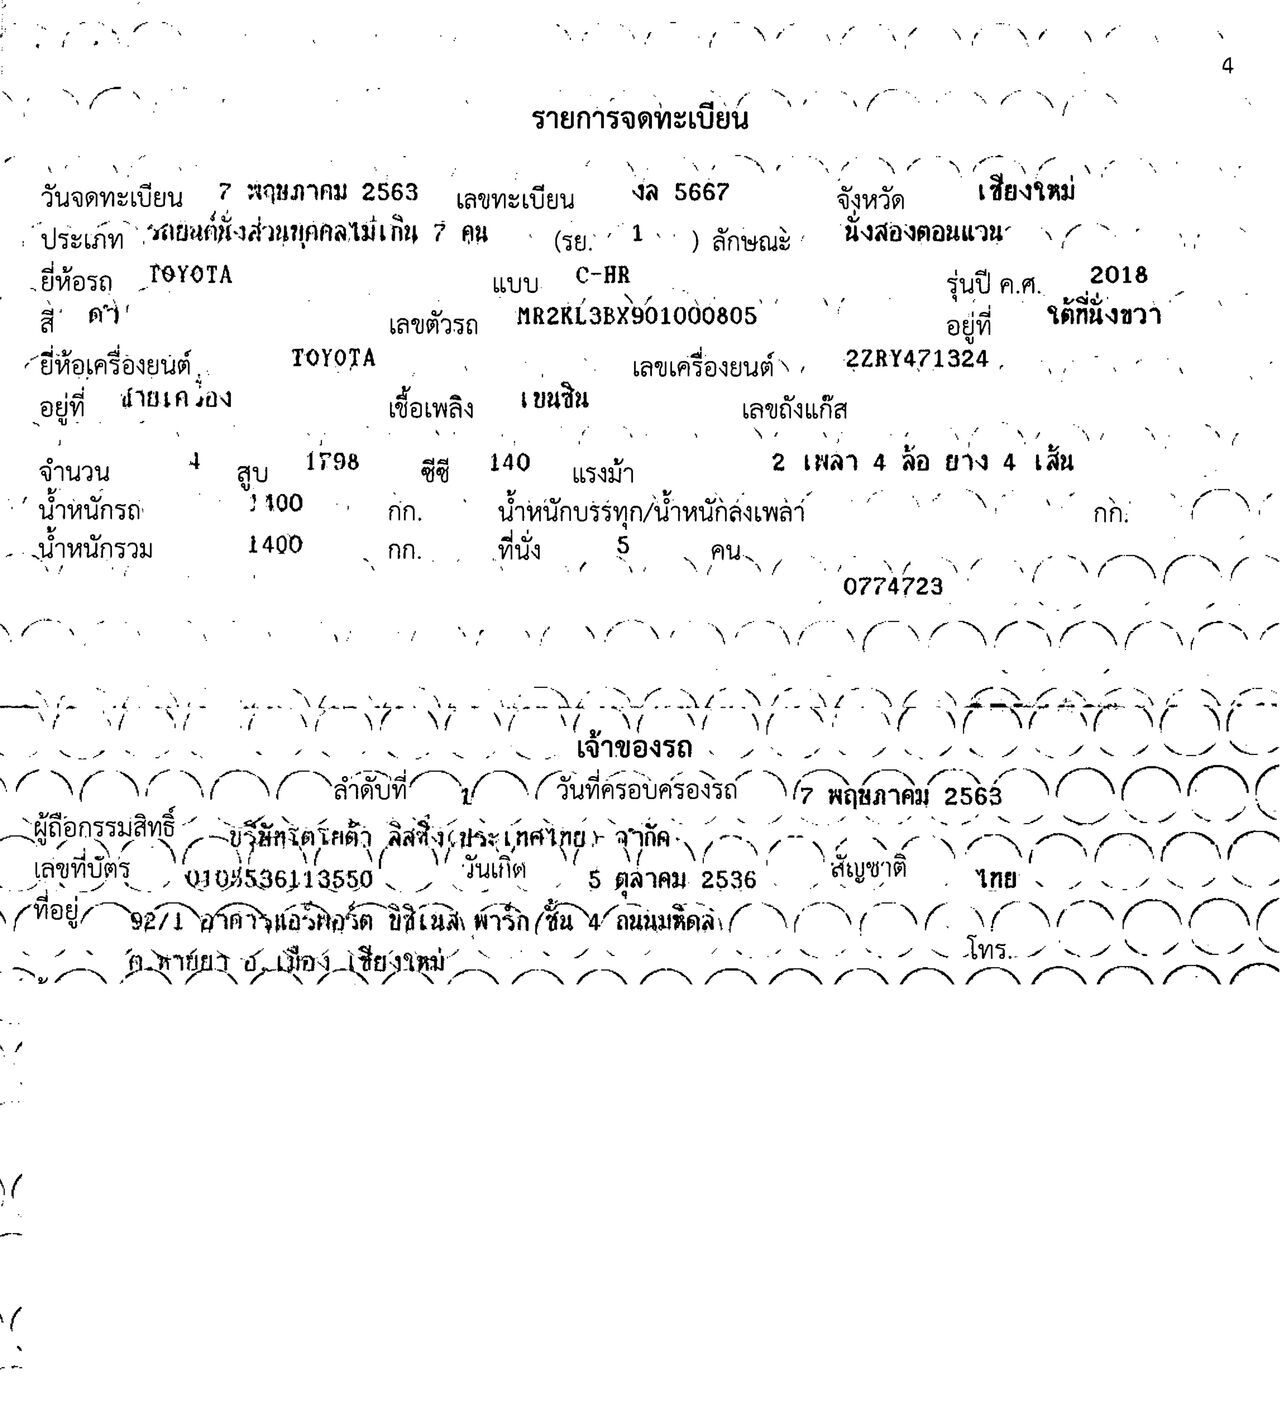 4
รายการจดทะเบียน
วันจดทะเบียน 7 พฤษภาคม 2563 เลขทะเบียน งล 5667 จังหวัด เชียงใหม่
ประเภท รถยนต์นั่งส่วนบุคคลไม่เกิน 7 คน (รย. 1 ) ลักษณะ นั่งสองตอนแวน
ยี่ห้อรถ TOYOTA แบบ C-HR รุ่นปี ค.ศ. 2018
สี ดำ เลขตัวรถ MR2KL3BX901000805 อยู่ที่ ใต้ที่นั่งขวา
ยี่ห้อเครื่องยนต์ TOYOTA เลขเครื่องยนต์ 2ZRY471324
อยู่ที่ ซ้ายเครื่อง เชื้อเพลิง เบนซิน เลขถังแก๊ส
จำนวน 4 สูบ 1798 ซีซี 140 แรงม้า 2 เพลา 4 ล้อ ยาง 4 เส้น
น้ำหนักรถ 1400 กก. น้ำหนักบรรทุก/น้ำหนักลงเพลา กก.
น้ำหนักรวม 1400 กก. ที่นั่ง 5 คน
0774723
เจ้าของรถ
ลำดับที่ 1 วันที่ครอบครองรถ 7 พฤษภาคม 2563
ผู้ถือกรรมสิทธิ์ บริษัทโตโยต้า ลีสซิ่ง(ประเทศไทย) จำกัด
เลขที่บัตร 0105536113550 วันเกิด 5 ตุลาคม 2536 สัญชาติ ไทย
ที่อยู่ 92/1 อาคารแอร์พอร์ต บิซิเนส พาร์ก ชั้น 4 ถนนมหิดล
ต.หายยา อ.เมือง เชียงใหม่ โทร.